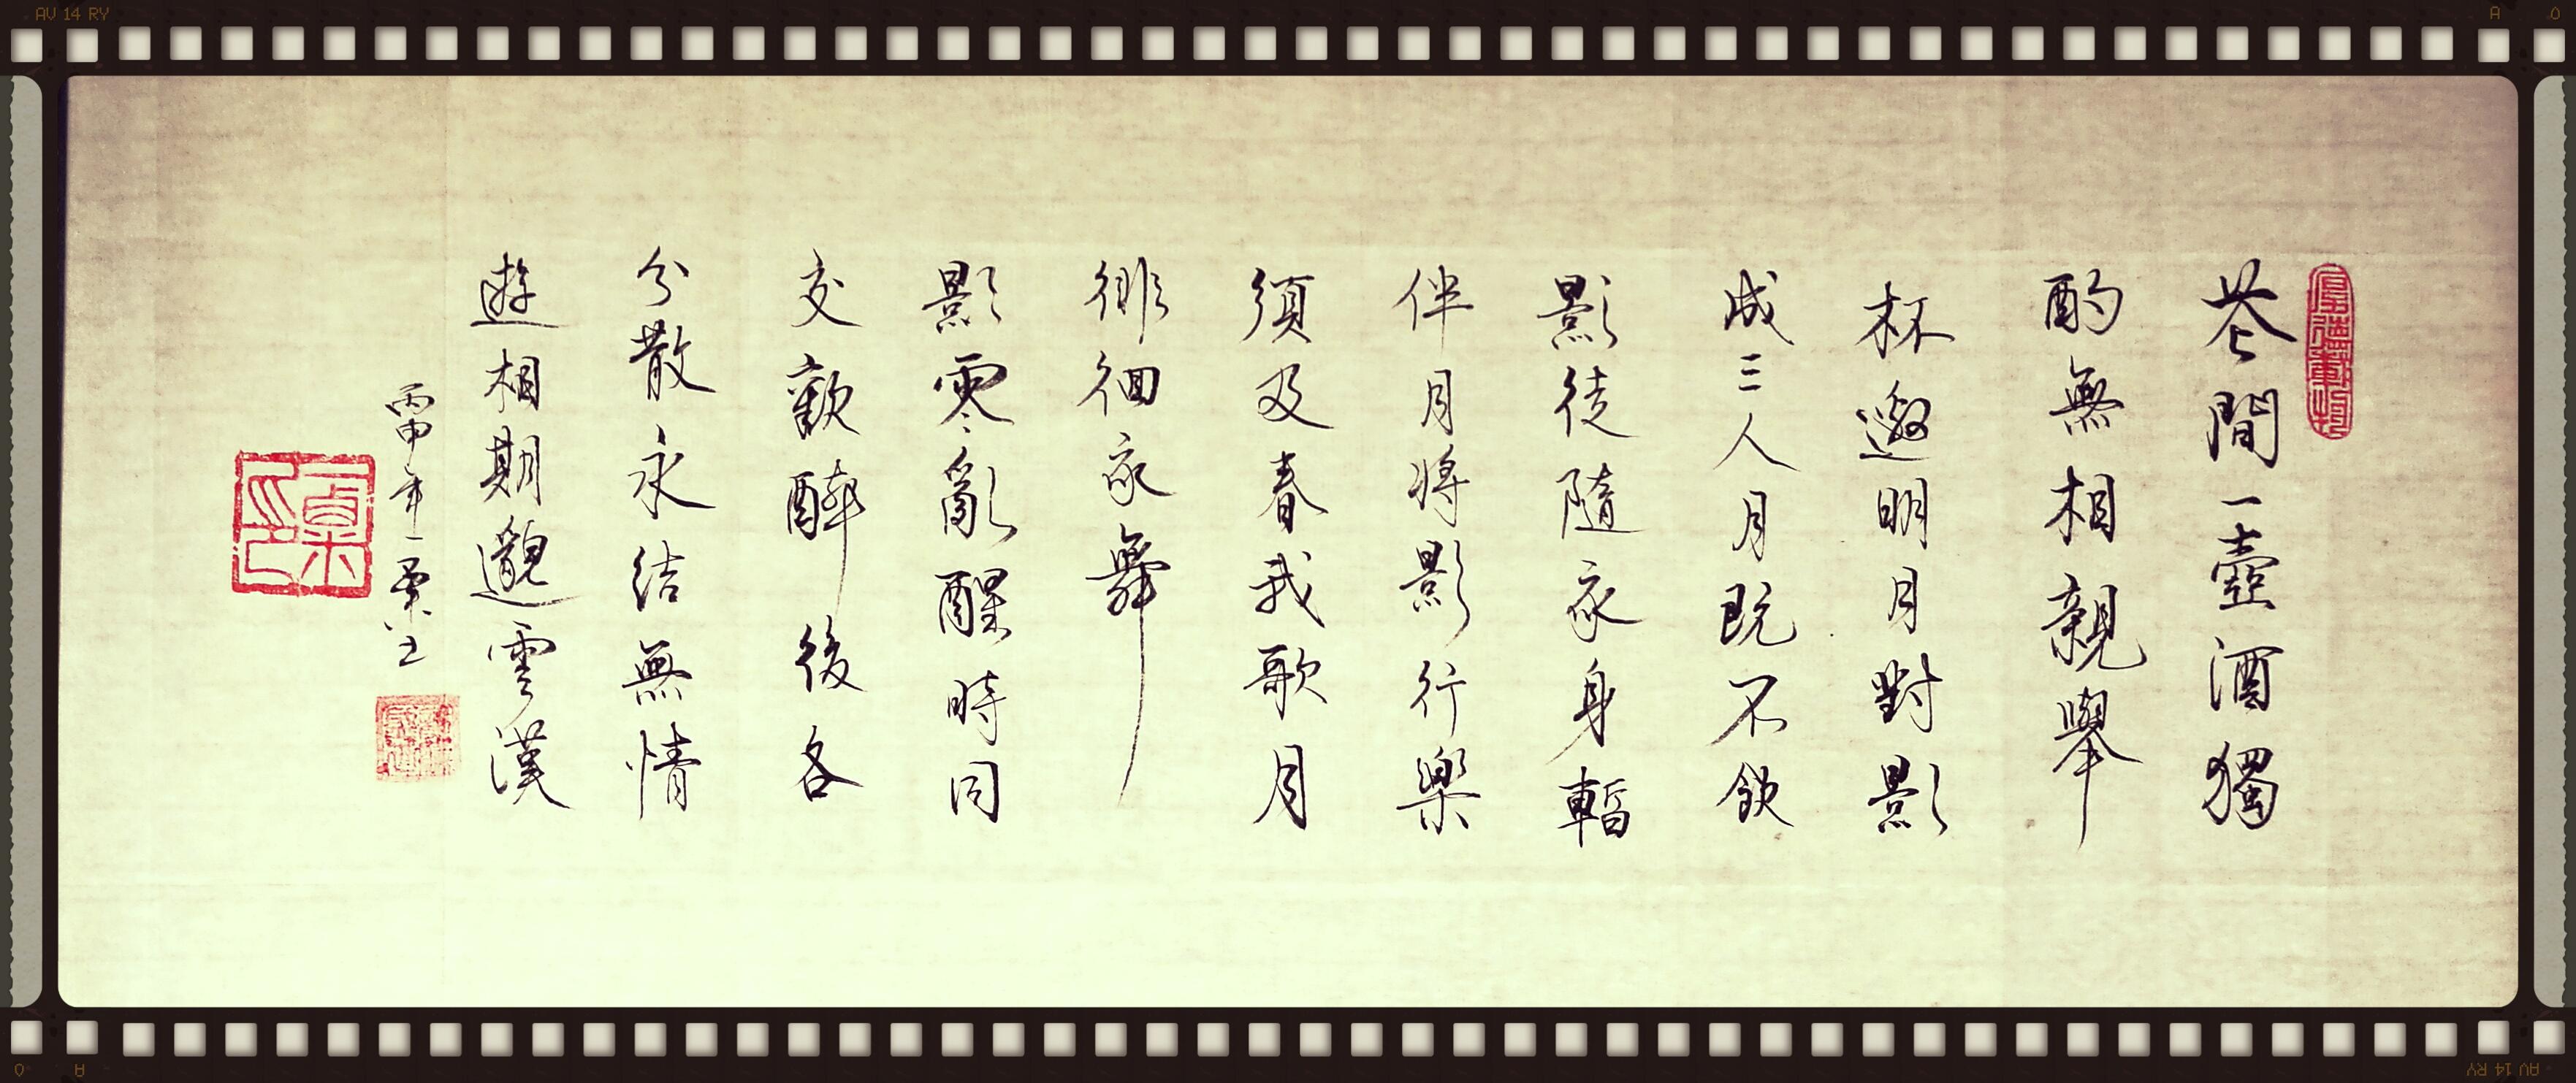 花間一壺酒獨
酌無相親舉
杯邀明月對影
成三人月既不飲
影徒隨我身暫
伴月將影行樂
須及春我歌月
徘徊我舞
影零亂醒時同
交歡醉後各
分散永結無情
遊相期邈雲漢
丙申年
厚德載物
AV 14 RY
A
O
O
A
AV 14 RY